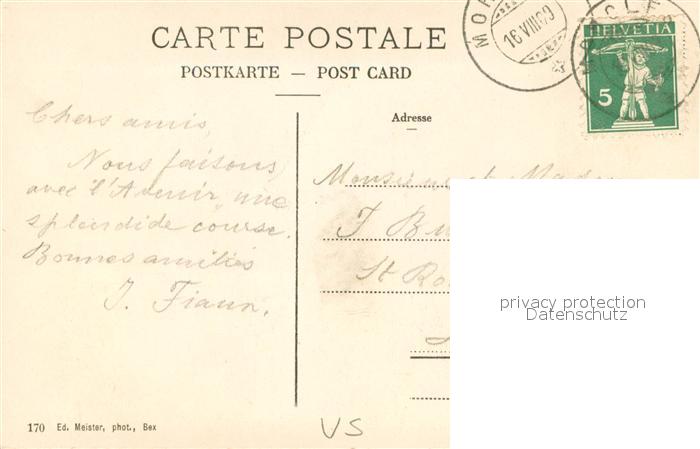 CARTE POSTALE
POSTKARTE — POST CARD
16 VIII 09
HELVETIA
5
Adresse
Chers amis,
Nous faisons
avec "l'Avenir" une
splendide course.
Bonnes amitiés
J.
Monsieur et
J.
St
privacy protection
Datenschutz
170 Ed. Meister, phot., Bex
VS